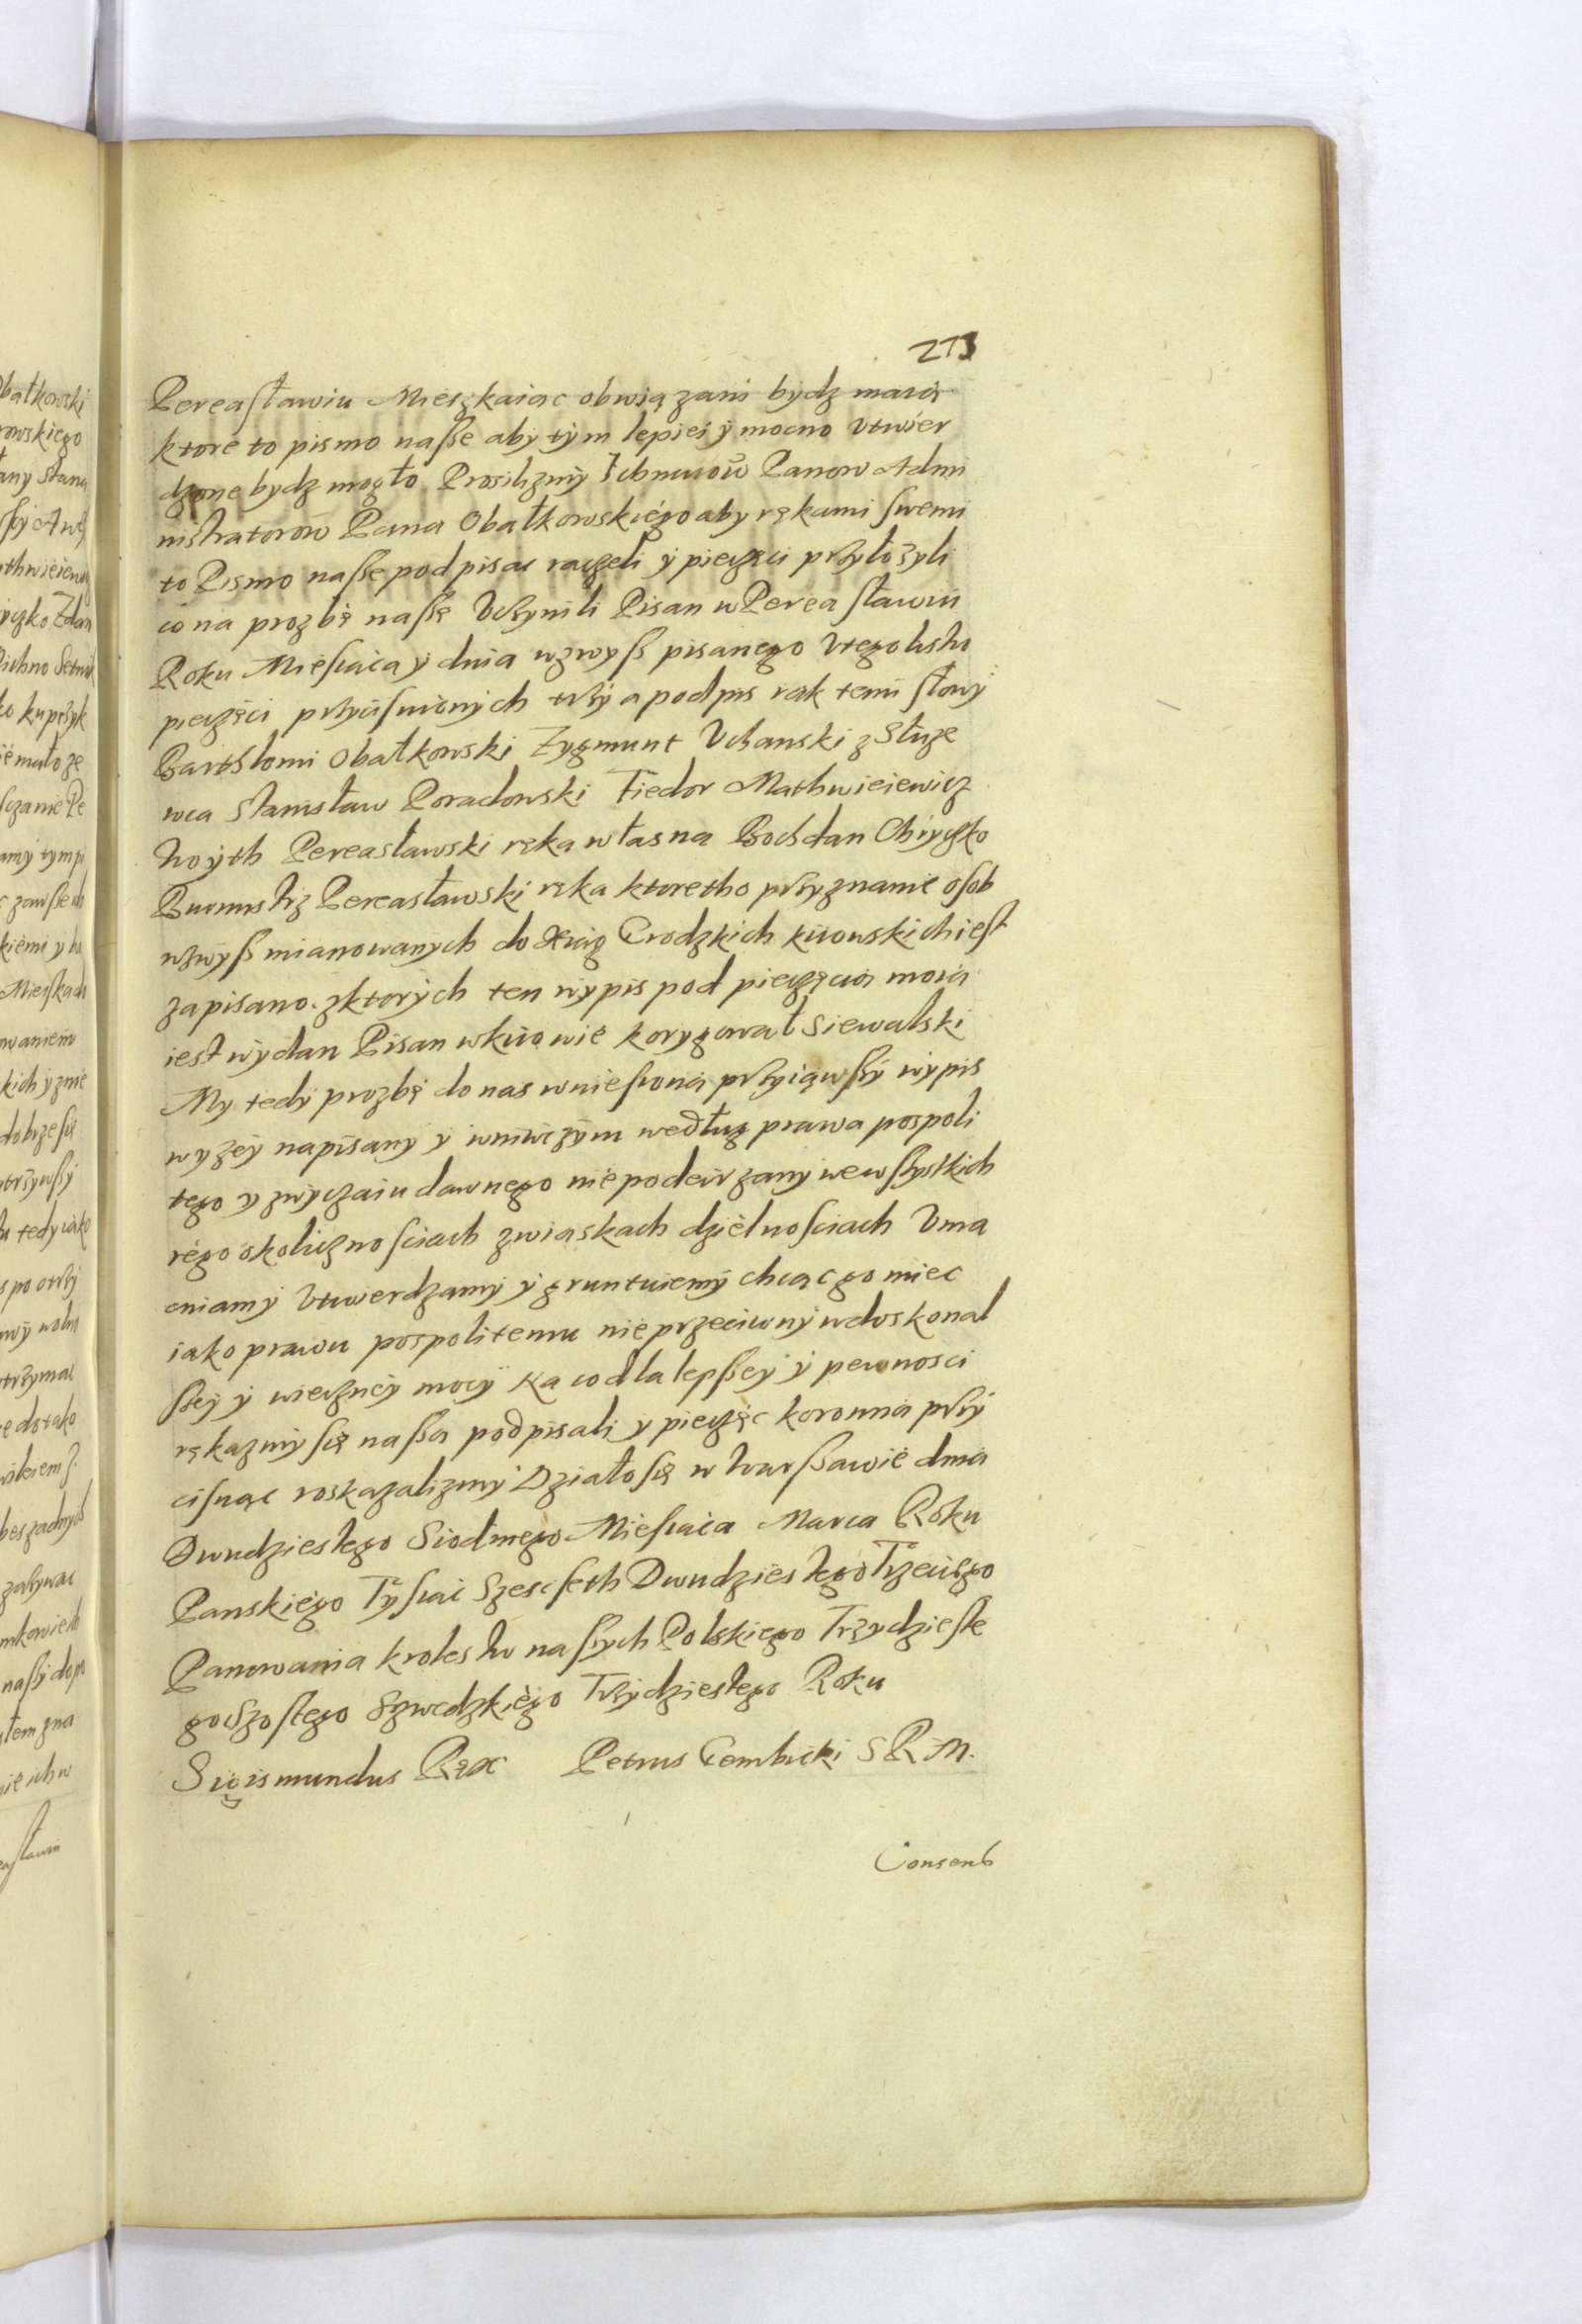 213
Pereasławiu Mieszkaiac obwiązani bydz maią
ktore to pismo nasze aby tym lepiei y mocno vtwier
dzone bydz mogło. Prosilizmy Ichmciow Panow Admi
nistratorow Pana Obałkowskiego aby rękami swemi
to Pismo nasze podpisac raczeli y pieczęci przyłozyli
co na prozbę naszę Vczynili Pisan w Pereasławiu
Roku Miesiaca y dnia wzwysz pisanego V tego listu
pieczęci przycisnionych trzy a podpis rąk temi słowy
Barthłomi Obałkowski Zygmunt Vchanski z Słuze
wca Stanisław Poradowski Fiedor Mathwieiewicz
Woyth Pereasławski ręka własna Bochdan
Burmistrz Pereasławski ręka ktoretho przyznanie osob
wzwysz mianowanych do Xiąg Grodzkich kiiowskich iest
zapisano. z ktorych ten wypis pod pieczęcią moią
iest wydan Pisan w kiiowie korygował Siewalski
My tedy prozbę do nas wniesioną przyiąwszy wypis
wyzey napisany y wniwczym według prawa pospoli
tego y zwyczaiu dawnego niepodeirzany we wszystkich
iego okolicznosciach zwiąskach dzielnosciach Vma
cniamy Vtwerdzamy y gruntuiemy chcąc go miec
iako prawu pospolitemu nieprzeciwny w doskonal
szey y wieczney mocy Na co dla lepszey y pewnosci
ręką zmy się naszą podpisali y pieczęc koronną przy
cisnąc roskazalizmy Działo się w Warszawie dnia
Dwudziestego Siodmego Miesiaca Marca Roku
Panskiego Tysiac Szescseth Dwudziestego Trzeciego
Panowania krolestw naszych Polskiego Trzydzieste
go Szostego Szwedzkiego Trzydziestego Roku
Sigismundus Rex Petrus Gembicki S R M.
Consens